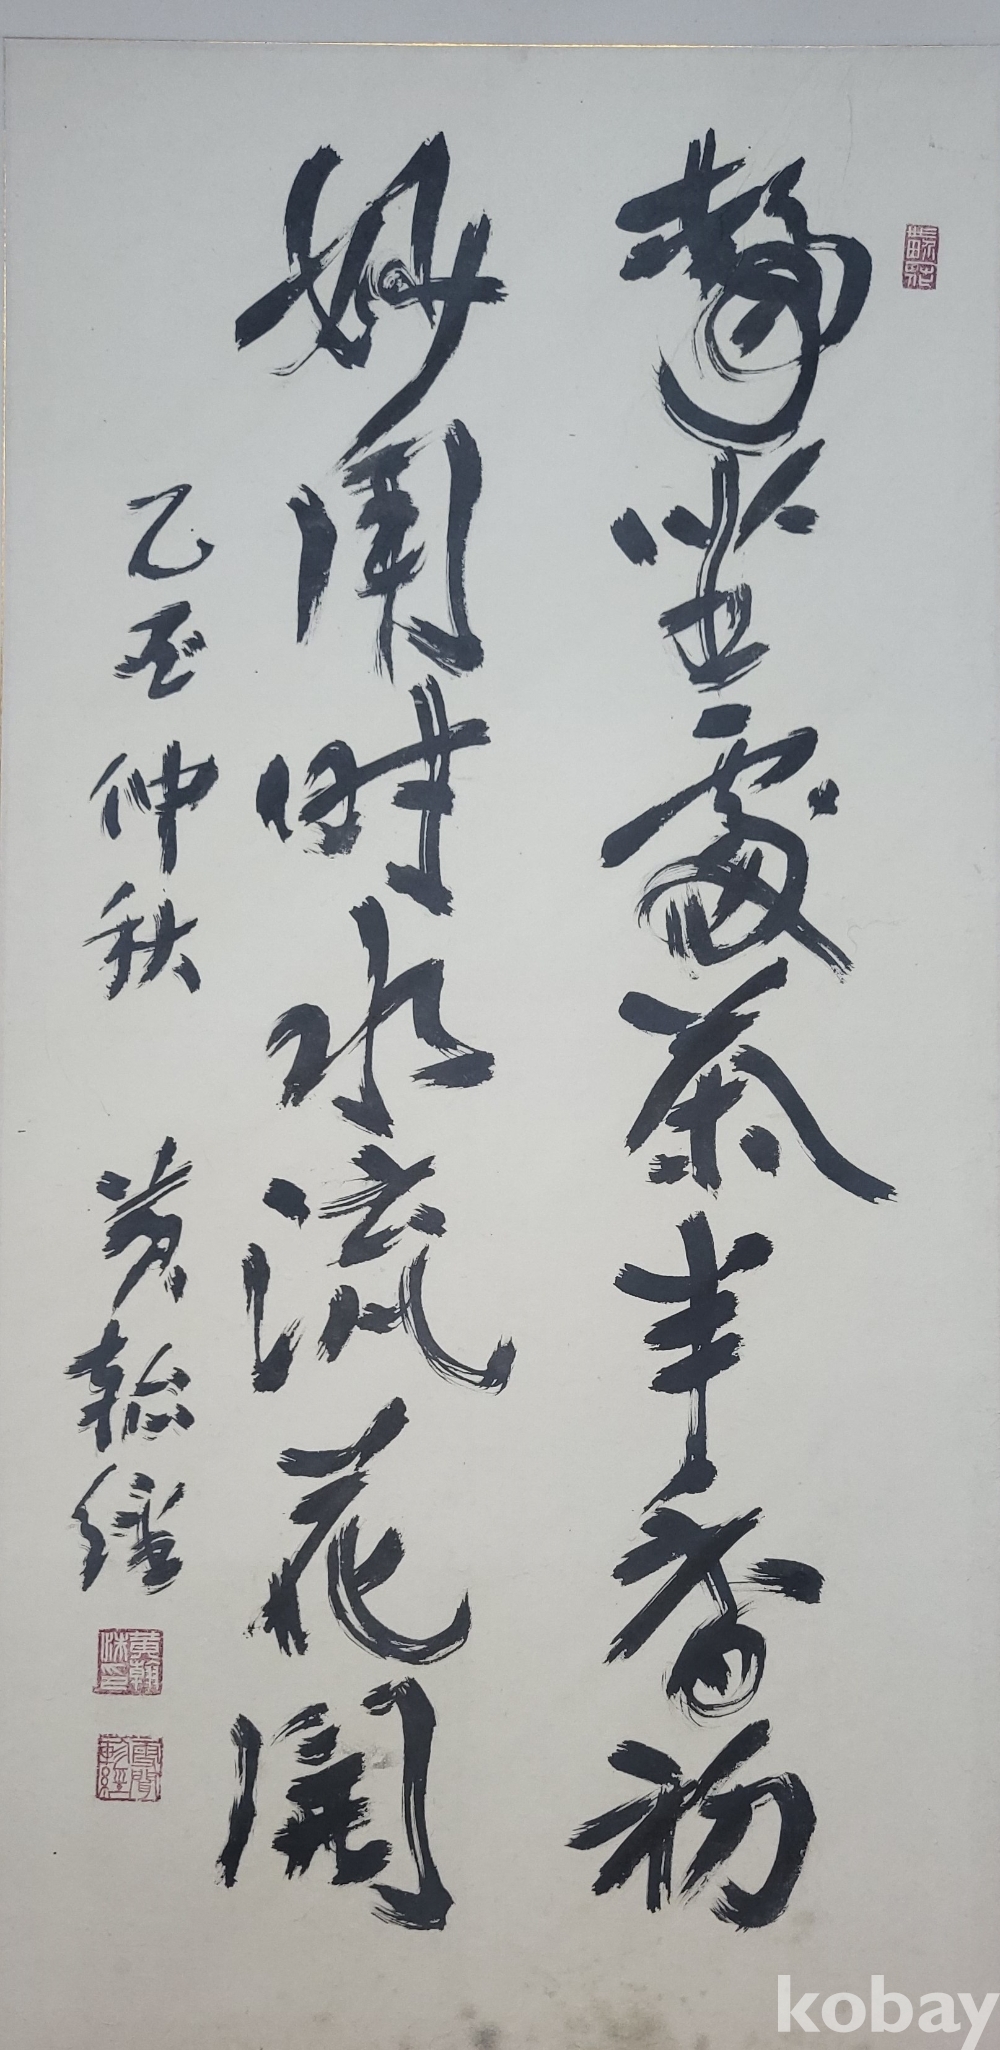 靜坐處茶半香初
妙用時水流花開
乙丑仲秋
kobay